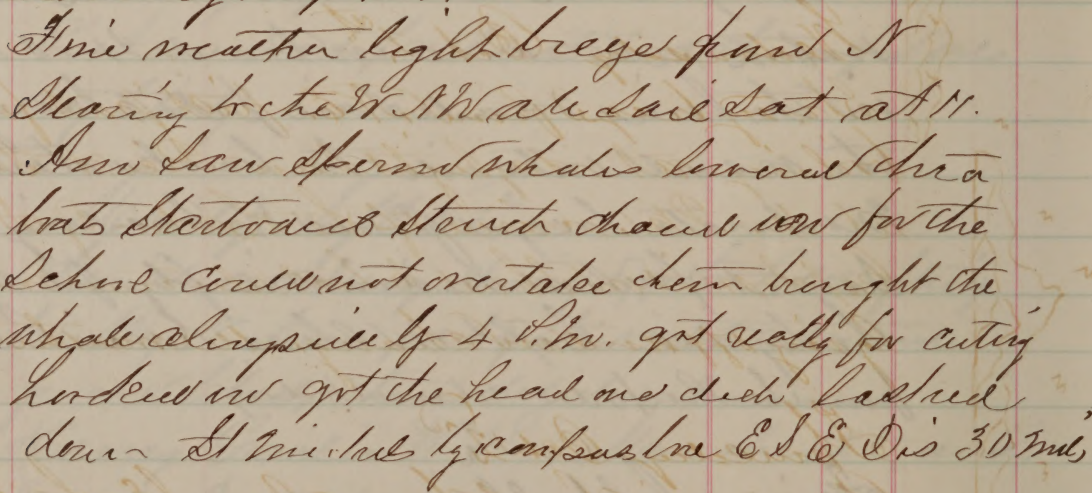 Fine weather light breeze from N
Stearing to the W N W all Sail Sat at 11.
Am Saw Sperm whales lowered three
boats Starboard Struck chased now for the
School could not overtake them brought the
whale alongside by 4 P.M. got ready for cuting
in got the head one deck lashed
down St Michels by compass bore E S E Dis 30 Mils